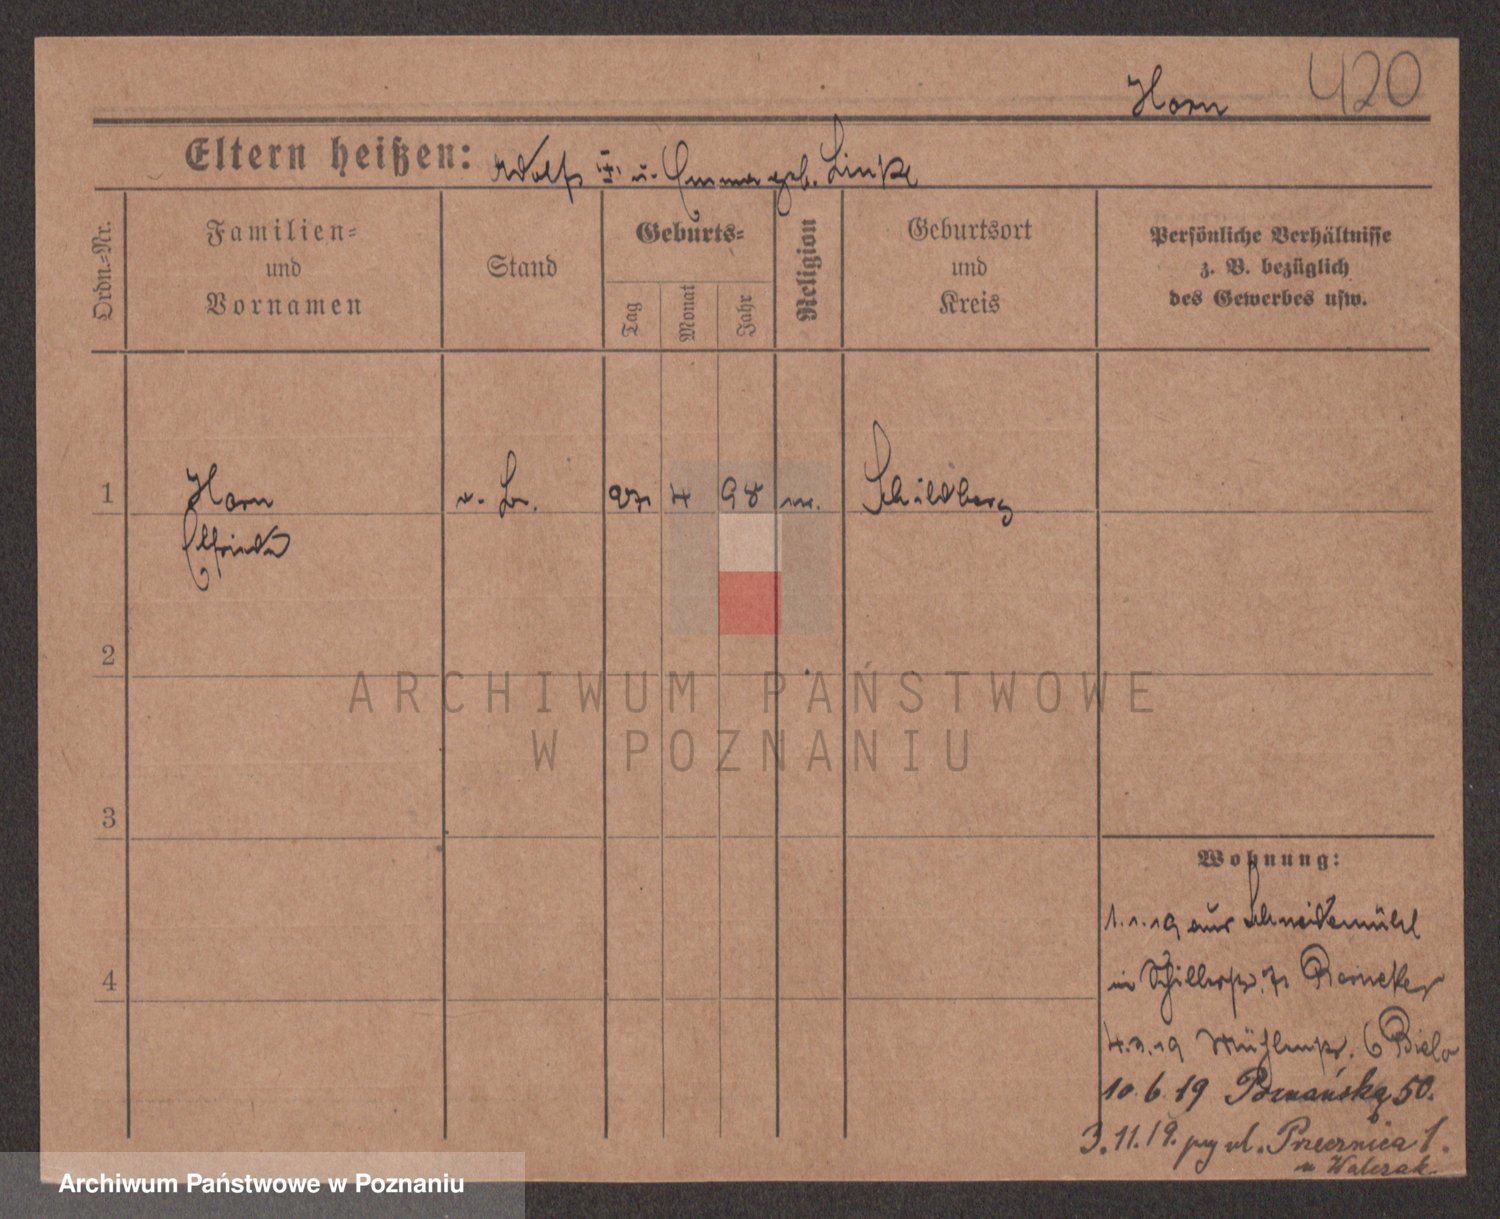 Horn 420
Eltern heißen: Adolf u. Emma geb. Linke
Ordn.-Nr.
Familien-
und
Vornamen
Stand
Geburts-
Tag
Monat
Jahr
Religion
Geburtsort
und
Kreis
Persönliche Verhältnisse
z. B. bezüglich
des Gewerbes usw.
1 Horn 27 4 98 Schildberg
Elfriede
2
3
4
Wohnung:
1.1.19 aus Schneidemühl
in Schillerstr. 7
4.3.19 Mühlenstr. 6
10.6.19 Poznańska 50.
3.11.19. przy ul. Przecznica 1.
u Walczak
ARCHIWUM PAŃSTWOWE
W POZNANIU
Archiwum Państwowe w Poznaniu